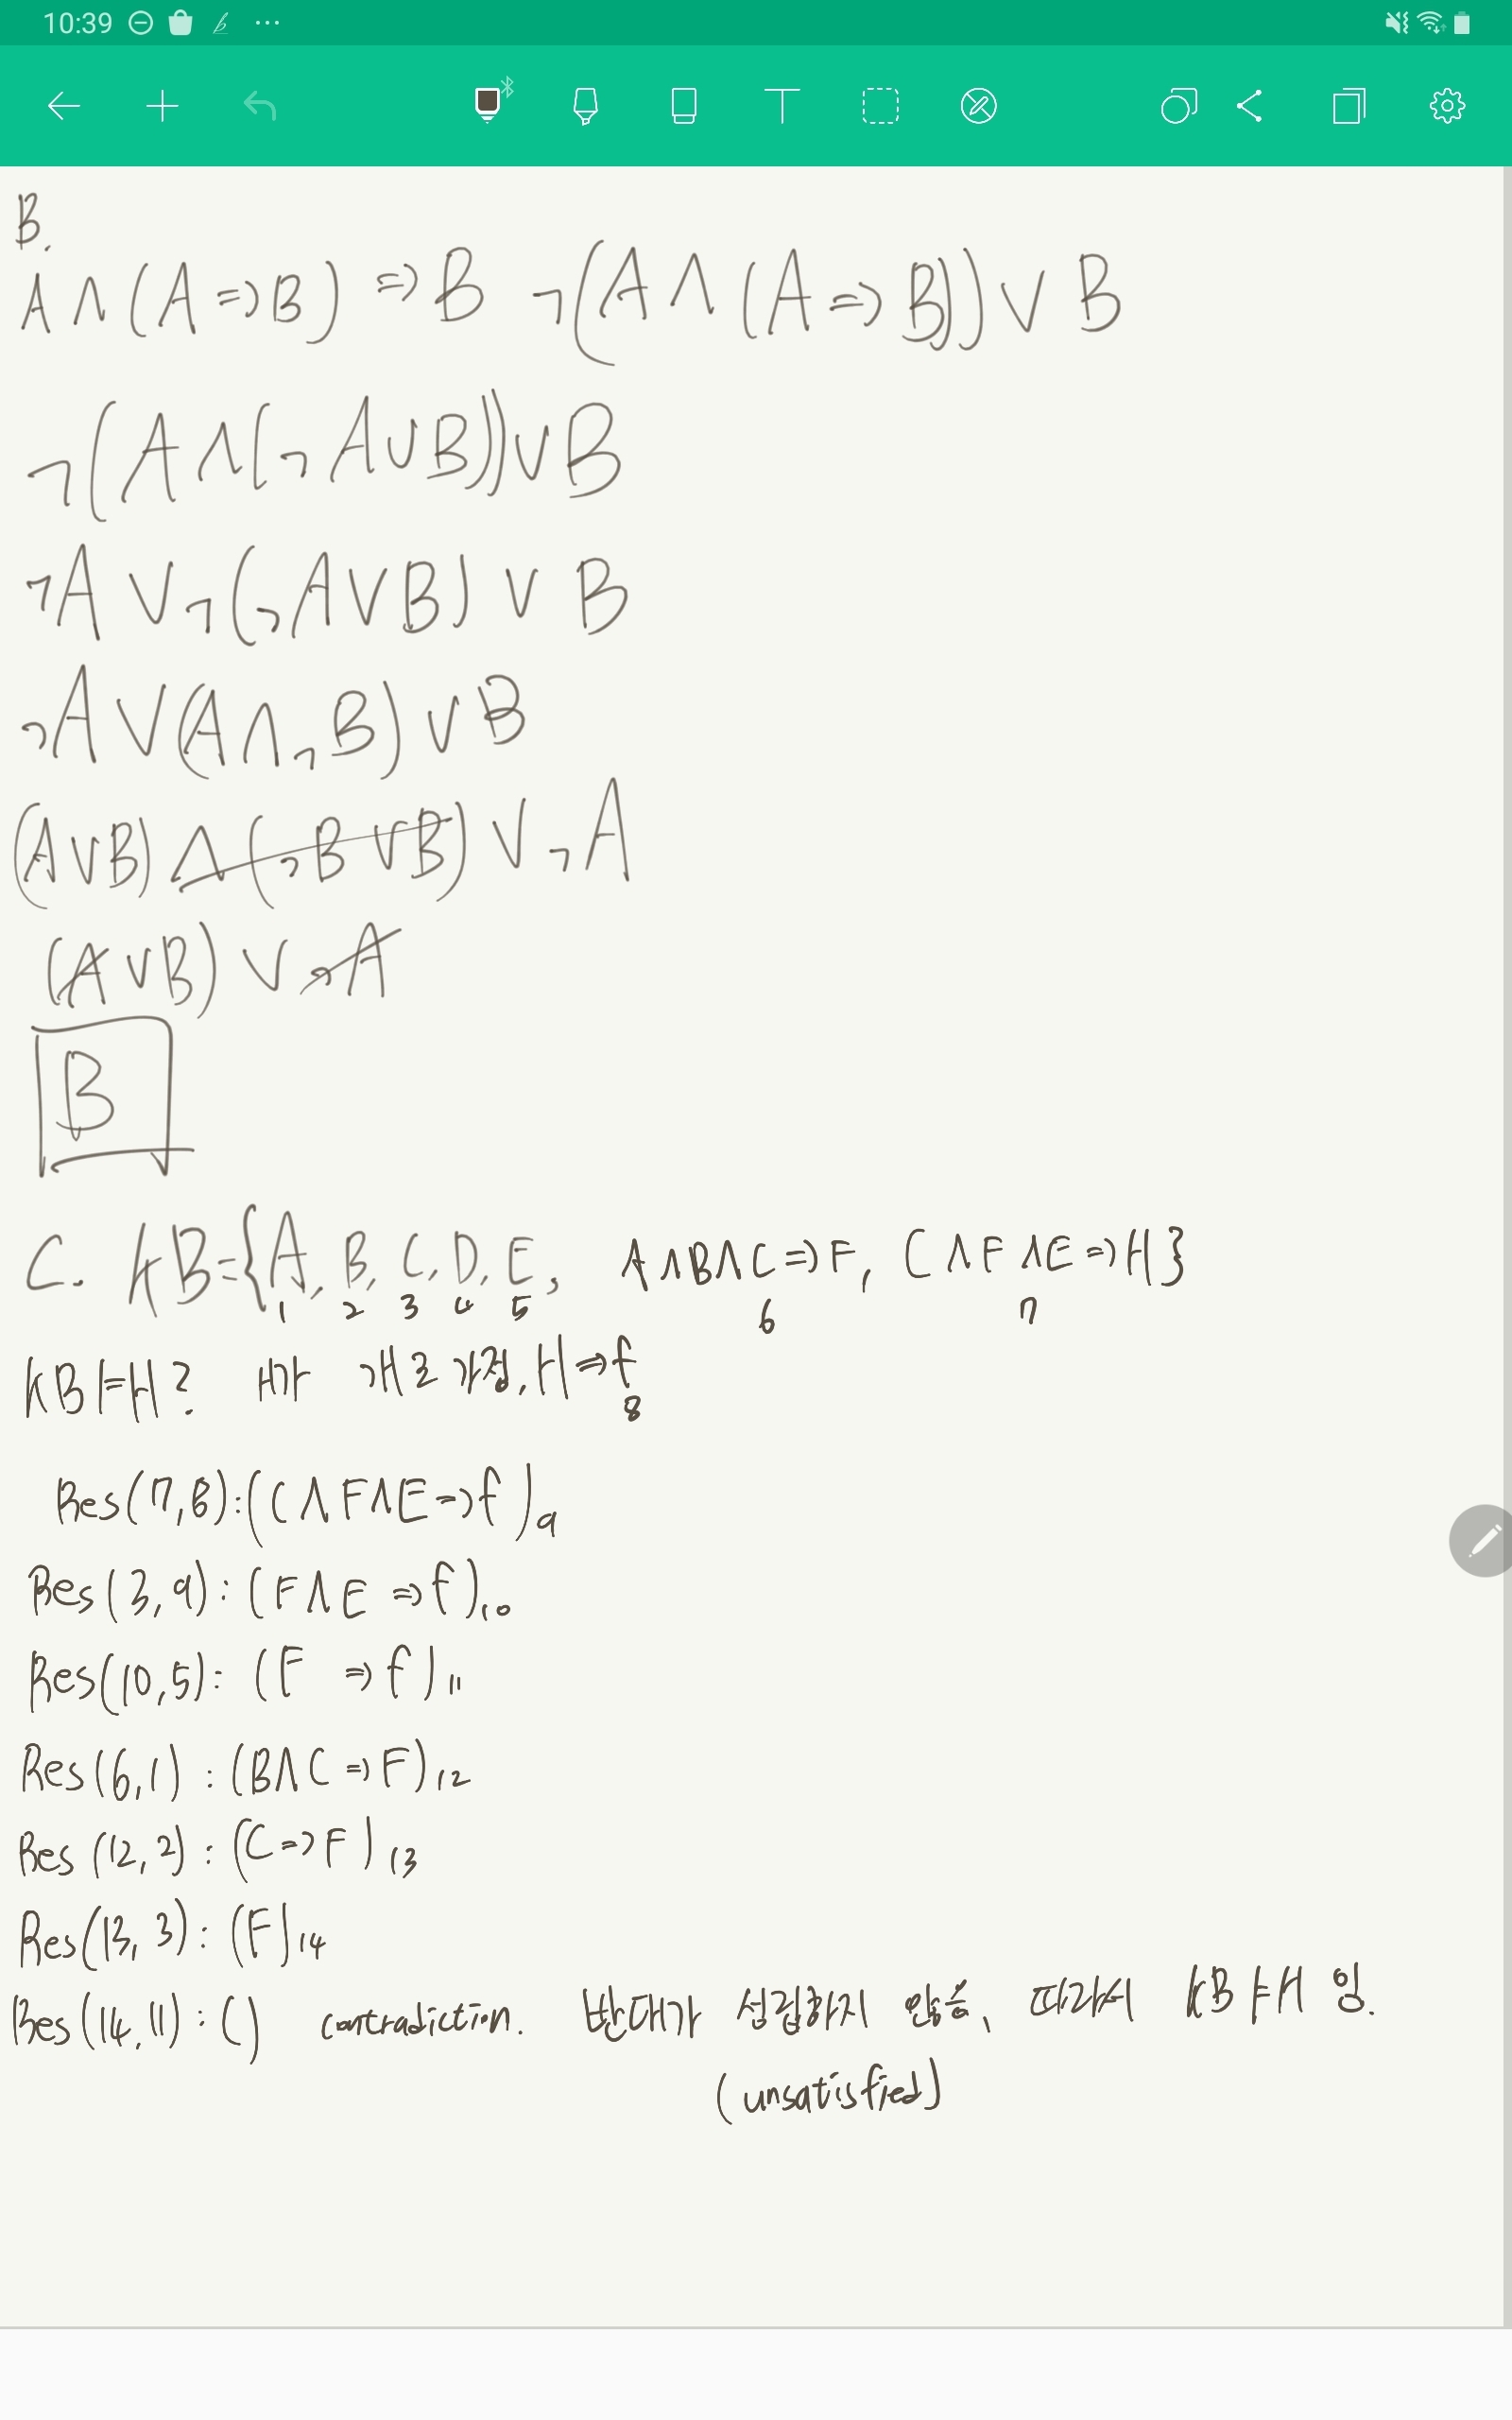 10:39
B.
A∧(A⇒B)⇒B ¬(A∧(A⇒B))∨B
¬(A∧(¬A∪B))∨B
¬A∨¬(¬A∨B)∨B
¬A∨(A∧¬B)∨B
(A∨B)∧(¬B∨B)∨¬A
(A∨B)∨¬A
B
C. KB={A, B, C, D, E, A∧B∧C⇒F, C∧F∧E⇒H}
1 2 3 4 5 6 7
KB⊨H? 가정, H⇒f
8
Res(7,8):(C∧F∧E⇒f)9
Res(3,9):(F∧E⇒f)10
Res(10,5):(F⇒f)11
Res(6,1):(B∧C⇒F)12
Res(12,2):(C⇒F)13
Res(13,3):(F)14
Res(14,11):() contradiction. 반대가 성립하지 않음, 따라서 KB⊨H 임.
(unsatisfied)